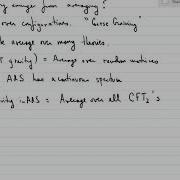 emerge from averaging?
over configurations. "Coarse Graining"
average over many theories.
gravity) = Average over random matrices
AdS has a continuous spectrum
in AdS = Average over all CFT₂'s